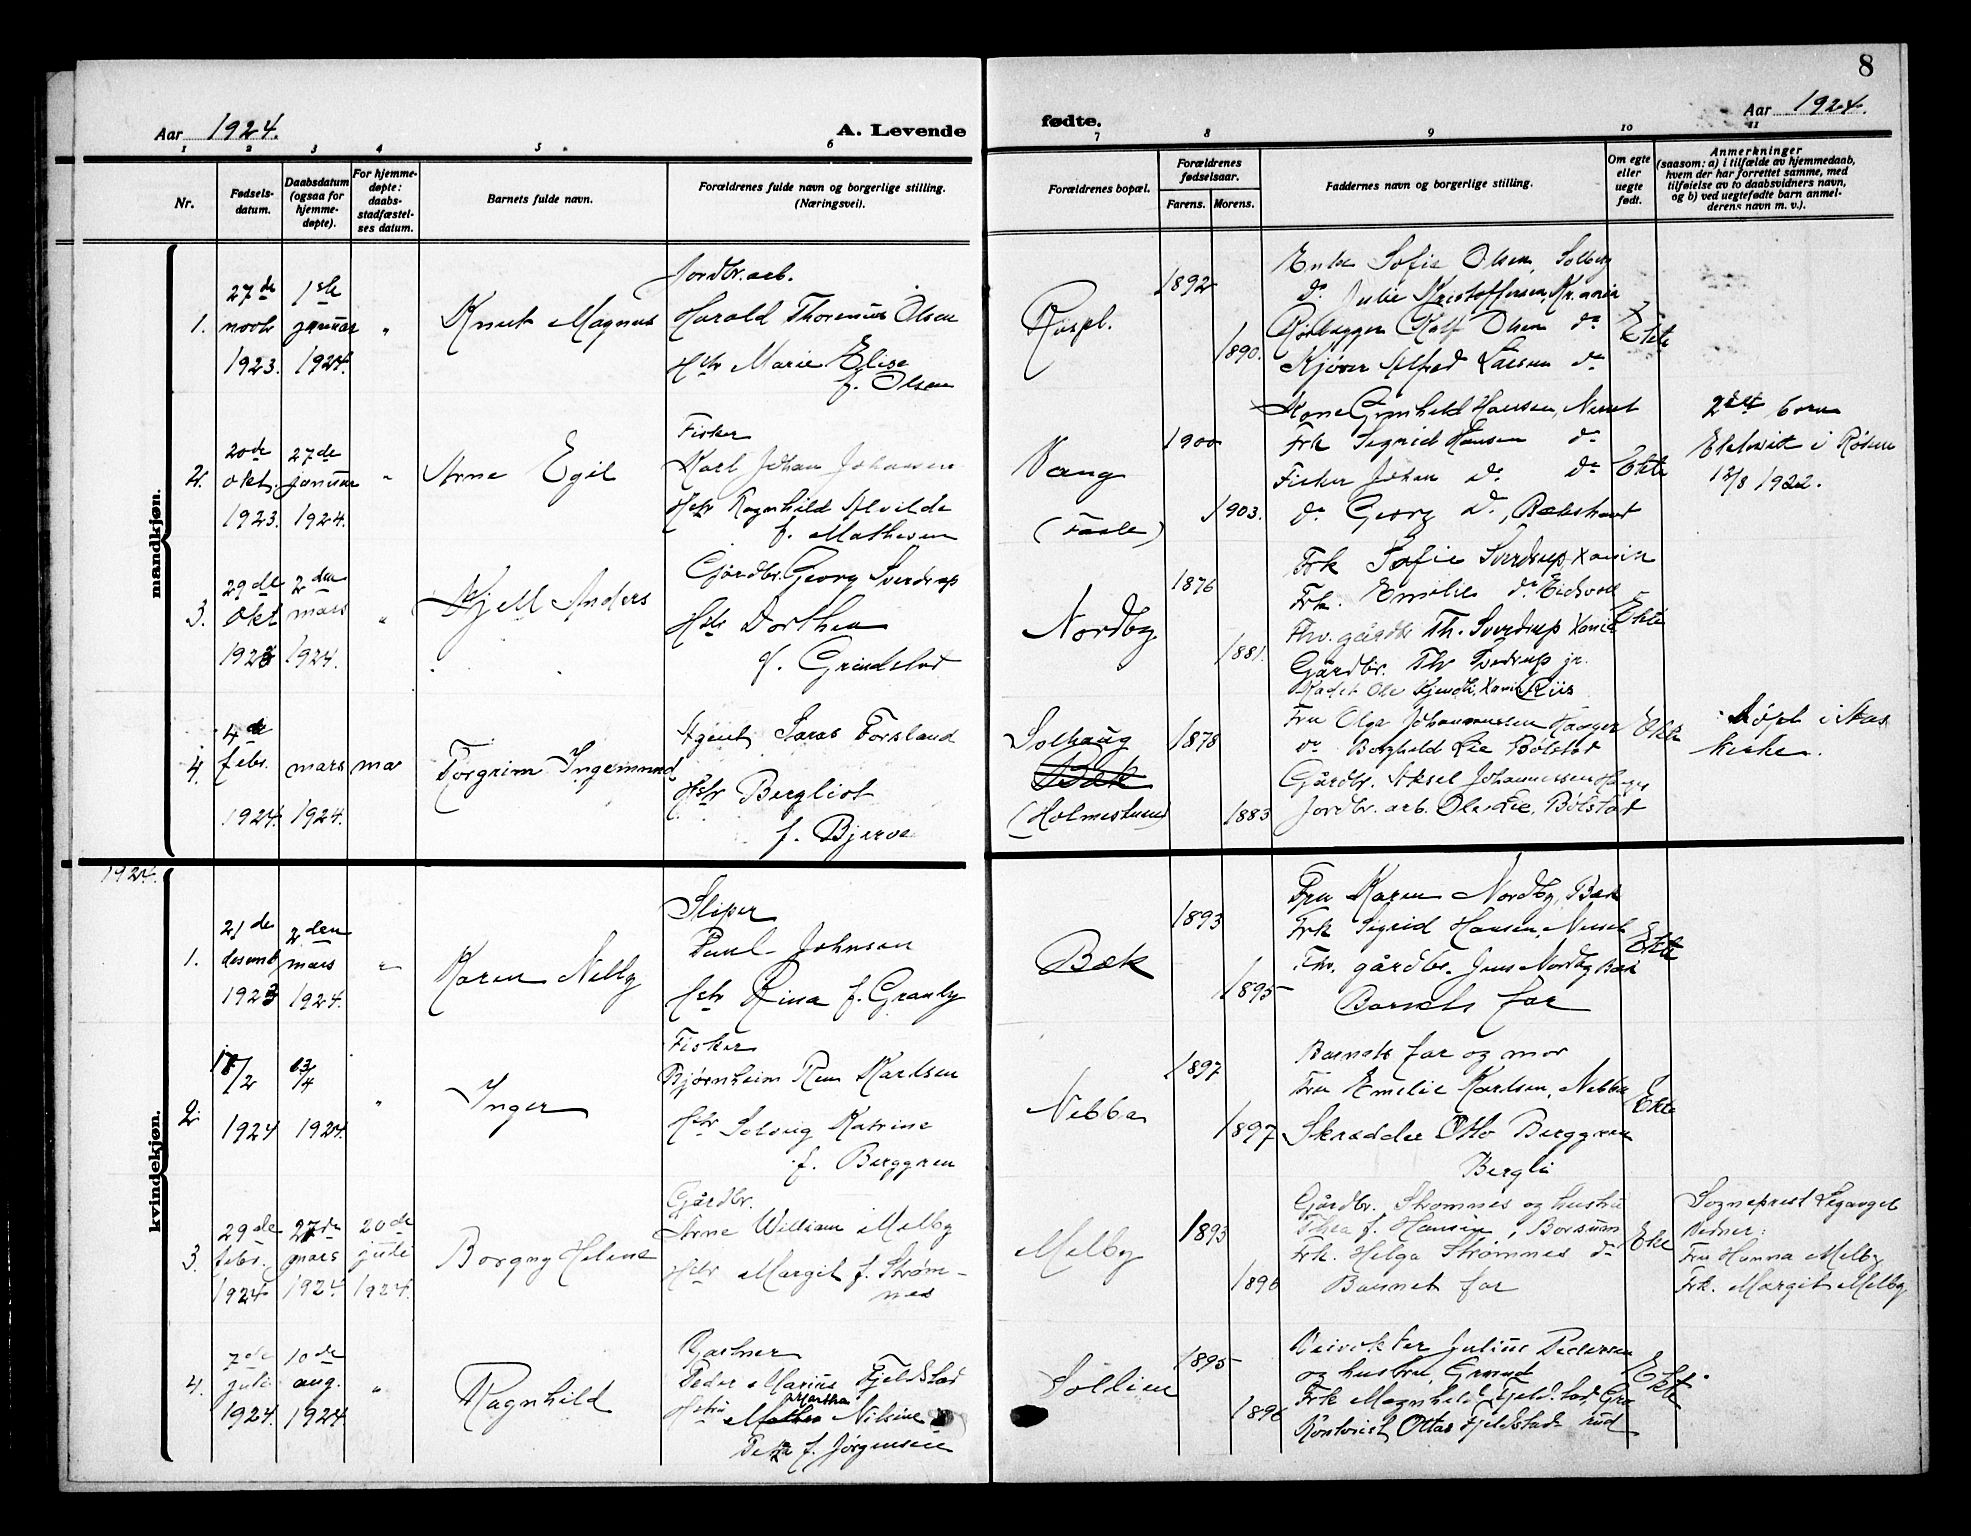 8
Aar 1924.
A. Levende
fødte.
Aar 1924.
1 2 3 4 5 6 7 8 9 10 11
Nr.
Fødsels-
datum.
Daabsdatum
(ogsaa for
hjemme-
døpte).
For hjemme-
døpte:
daabs-
stadfæstel-
ses datum.
Barnets fulde navn.
Forældrenes fulde navn og borgerlige stilling.
(Næringsvei).
Forældrenes bopæl.
Forældrenes
fødselsaar.
Farens. Morens.
Faddernes navn og borgerlige stilling.
Om egte
eller
uegte
født.
Anmerkninger
(saasom: a) i tilfælde av hjemmedaab,
hvem der har forrettet samme, med
tilføielse av to daabsvidners navn,
og b) ved uegtefødte barn anmel-
derens navn m. v.).
mandkjøn.
1.
27de
novbr
1923.
1ste
januar
1924.
"
Knut Magnus
Jordbr. arb.
Harald Thorenius Olsen
Hstr Marie Elise
f. Olsen
1892
1890.
Enke Sofie Olsen, Solberg
do Julie Kristoffersen, Kr.ania
Rolf Olsen do
Alfred Larsen do
Ekte
2.
20de
okt.
1923.
27de
januar
1924.
"
Arne Egil
Fisker
Karl Johan Johansen
Hstr Ragnhild Alvilde
f. Mathesen
Vang
1900
1903.
Kone Gunhild Hansen, Neset
Frk Sigrid Hansen do
Fisker Johan do do
do Georg do,
Ekte
2det barn
Ekteviet i
12/8 1922.
3.
29de
Okt
1923
2den
mars
1924.
"
Kjell Anders
Gårdbr. Georg Sverdrup
Hstr Dorthea
f. Grindstad
Nordby
1876
1881.
Frk Sofie Sverdrup,
Frk. Emilie do Eidsvold
Fhv. gårdbr Th. Sverdrup
Gårdbr. Th Sverdrup jr.
Kadet Ole
Ekte
4.
4de
febr.
1924.
mars
1924.
mar
Torgrim Ingemund
Agent Saras Forsland
Hstr Bergliot
f. Bjerve
Solhaug
Bæk
(Holmestrand)
1878
1883
Fru Olga Johannessen Haager
do Borghild Lie Bølstad
Gårdbr. Aksel Johannessen
Jordbr. arb. Ole Lie, Bølstad
Ekte
Døpt i Aas
kirke.
1924.
kvindekjøn.
1.
21de
desemb
1923
2den
mars
1924.
"
Karen Nelly
Sliper
Paul Johnsen
Hstr Rina f. Granby
Bæk
1893
1895
Fru Karen Nordby, Bæk
Frk Sigrid Hansen, Neset
Fhv. gårdbr. Jens Nordby Bæk
Barnets far
Ekte
2.
18/2
1924
13/4
1924.
"
Inger
Fisker
Bjørnheim Karlsen
Hstr Solveig Katrine
f. Berggren
Nebba
1897
1897
Barnets far og mor
Fru Emelie Karlsen, Nebba
Skrædder Otto Berggren
Bergli
Ekte
3.
29de
febr.
1924
27de
mars
1924
20de
juli
1924.
Borgny Helene
Gårdbr.
Arne William Melby
Hstr Margit f. Strøm-
nes
Melby
1893
1896
Gårdbr. Strømnes og hustru
Thea f. Hansen, Borsum
Frk. Helga Strømnes do
Barnets far
Ekte
Sogneprest Ligangel
Vidner:
Fru Hanna Melby
Frk. Margit Melby
4.
7de
juli
1924.
10de
aug.
1924
"
Ragnhild
Gartner
Peder Marius Fjeldstad
Hstru Martha Nilsine
f. Jørgensen
Sollien
1895
1896
Julius Pedersen
og hustru,
Frk Magnhild Fjeldstad,
Kontorist Ottar Fjeldstad
Ekte